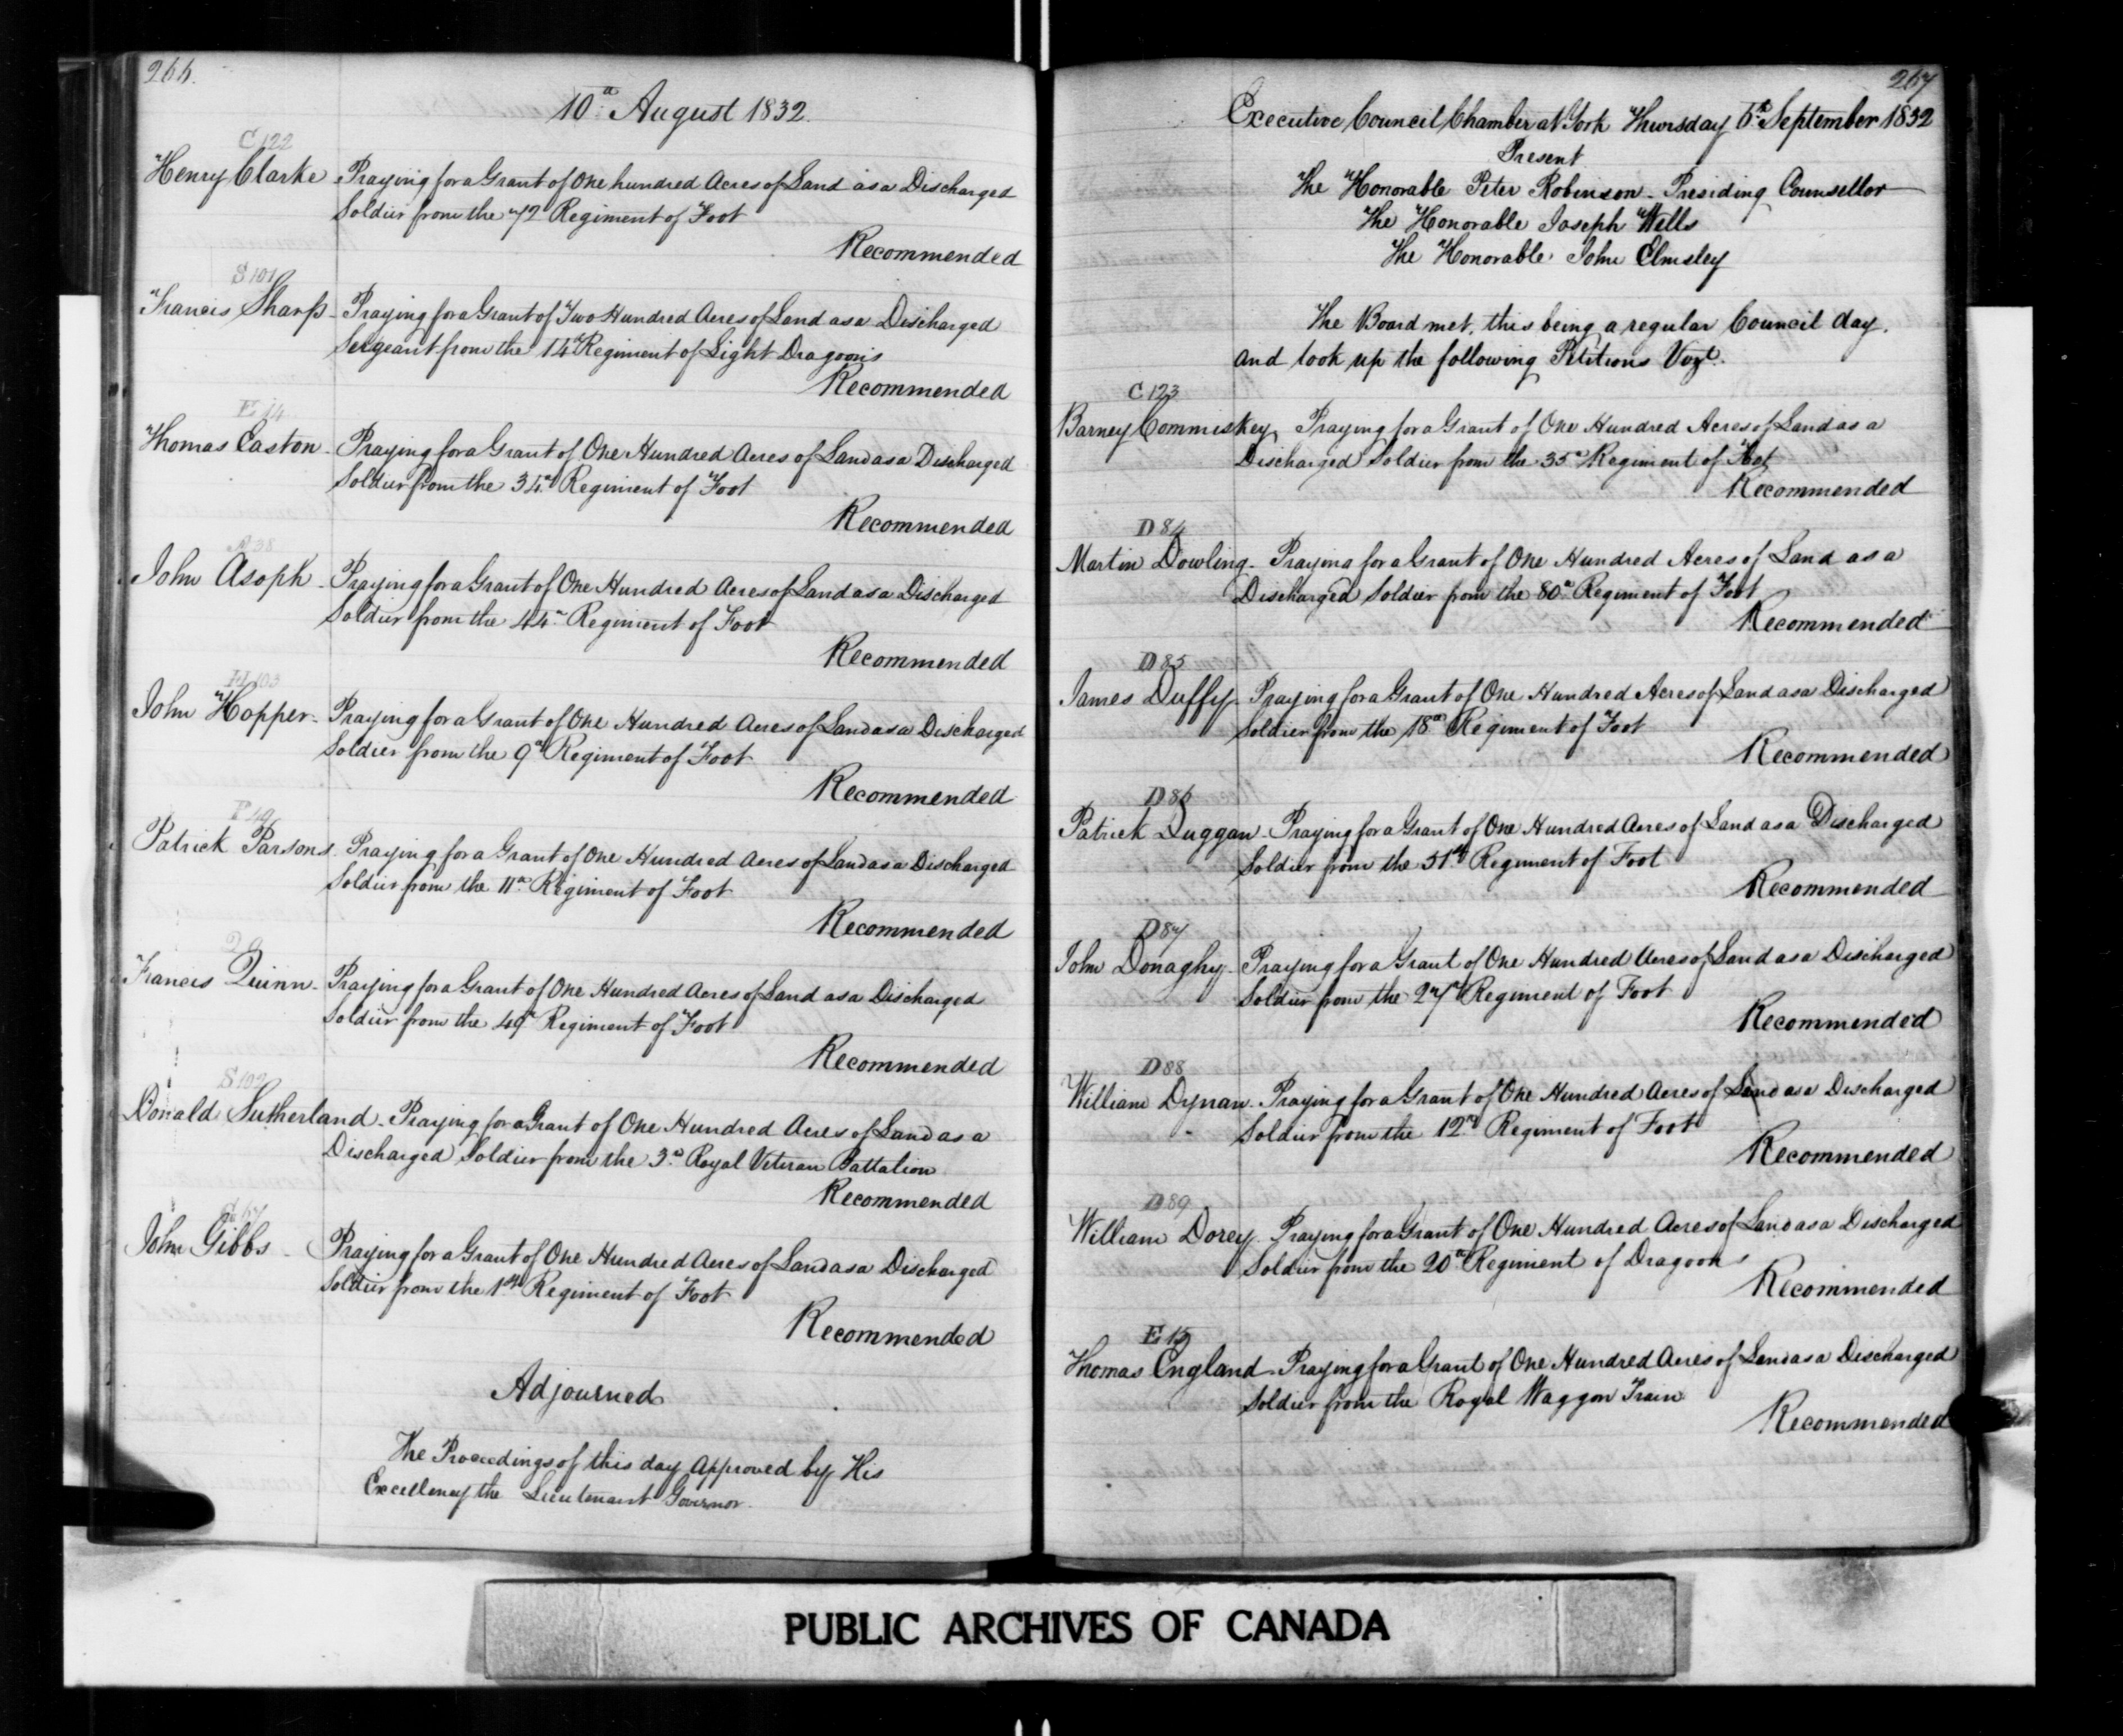 266.
10th August 1832.
C 122
Henry Clarke - Praying for a Grant of One hundred Acres of Land as a Discharged
Soldier from the 72 Regiment of Foot
Recommended
S 101
Francis Sharp - Praying for a Grant of Two Hundred Acres of Land as a Discharged
Sergeant from the 14th Regiment of Light Dragoons
Recommended
E 14
Thomas Easton - Praying for a Grant of One Hundred Acres of Land as a Discharged
Soldier from the 34th Regiment of Foot
Recommended
A 38
John Asoph - Praying for a Grant of One Hundred Acres of Land as a Discharged
Soldier from the 44th Regiment of Foot
Recommended
H 103
John Hopper - Praying for a Grant of One Hundred Acres of Land as a Discharged
Soldier from the 9th Regiment of Foot
Recommended
P 49
Patrick Parsons - Praying for a Grant of One Hundred Acres of Land as a Discharged
Soldier from the 11th Regiment of Foot
Recommended
Francis Quinn - Praying for a Grant of One Hundred Acres of Land as a Discharged
Soldier from the 49th Regiment of Foot
Recommended
S 102
Donald Sutherland - Praying for a Grant of One Hundred Acres of Land as a
Discharged Soldier from the 3d Royal Veteran Battalion
Recommended
John Gibbs - Praying for a Grant of One Hundred Acres of Land as a Discharged
Soldier from the 1st Regiment of Foot
Recommended
Adjourned
The Proceedings of this day Approved by His
Excellency the Lieutenant Governor.
267
Executive Council Chamber at York Thursday 6th September 1832
Present
The Honorable Peter Robinson - Presiding Counsellor
The Honorable Joseph Wells
The Honorable John Elmsley
The Board met, this being a regular Council day,
and took up the following Petitions Vizt.
C 123
Barney Commiskey Praying for a Grant of One Hundred Acres of Land as a
Discharged Soldier from the 35th Regiment of Foot
Recommended
D 84
Martin Dowling - Praying for a Grant of One Hundred Acres of Land as a
Discharged Soldier from the 80th Regiment of Foot
Recommended
D 85
James Duffy - Praying for a Grant of One Hundred Acres of Land as a Discharged
Soldier from the 18th Regiment of Foot
Recommended
D 86
Patrick Duggan - Praying for a Grant of One Hundred Acres of Land as a Discharged
Soldier from the 51st Regiment of Foot
Recommended
D 87
John Donaghy - Praying for a Grant of One Hundred Acres of Land as a Discharged
Soldier from the 27th Regiment of Foot
Recommended
D 88
William Dynan - Praying for a Grant of One Hundred Acres of Land as a Discharged
Soldier from the 12th Regiment of Foot
Recommended
D 89
William Dorey - Praying for a Grant of One Hundred Acres of Land as a Discharged
Soldier from the 20th Regiment of Dragoons
Recommended
E 15
Thomas England - Praying for a Grant of One Hundred Acres of Land as a Discharged
Soldier from the Royal Waggon Train
Recommended
PUBLIC ARCHIVES OF CANADA